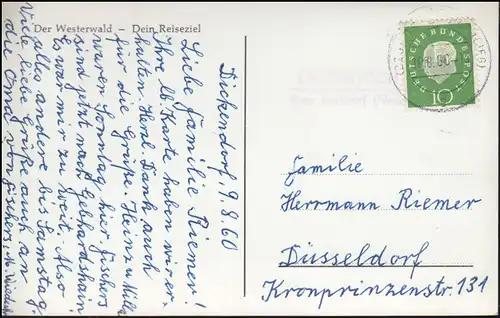 Der Westerwald – Dein Reiseziel
Dickendorf, 9.8.60
Liebe Familie Riemer!
Ihre lb. Karte haben wir er-
halten Herzl. Dank auch
für die Grüße Heinz u Milla
waren Sonntag hier. Fischers
sind jetzt nach Gebhardshain
Es war mir zu weit. Also
alles andere bis Samstag.
Viele liebe Grüße auch an
die Oma von Fischers,
DEUTSCHE BUNDESPOST
10
Familie
Herrmann Riemer
Düsseldorf
Kronprinzenstr. 131